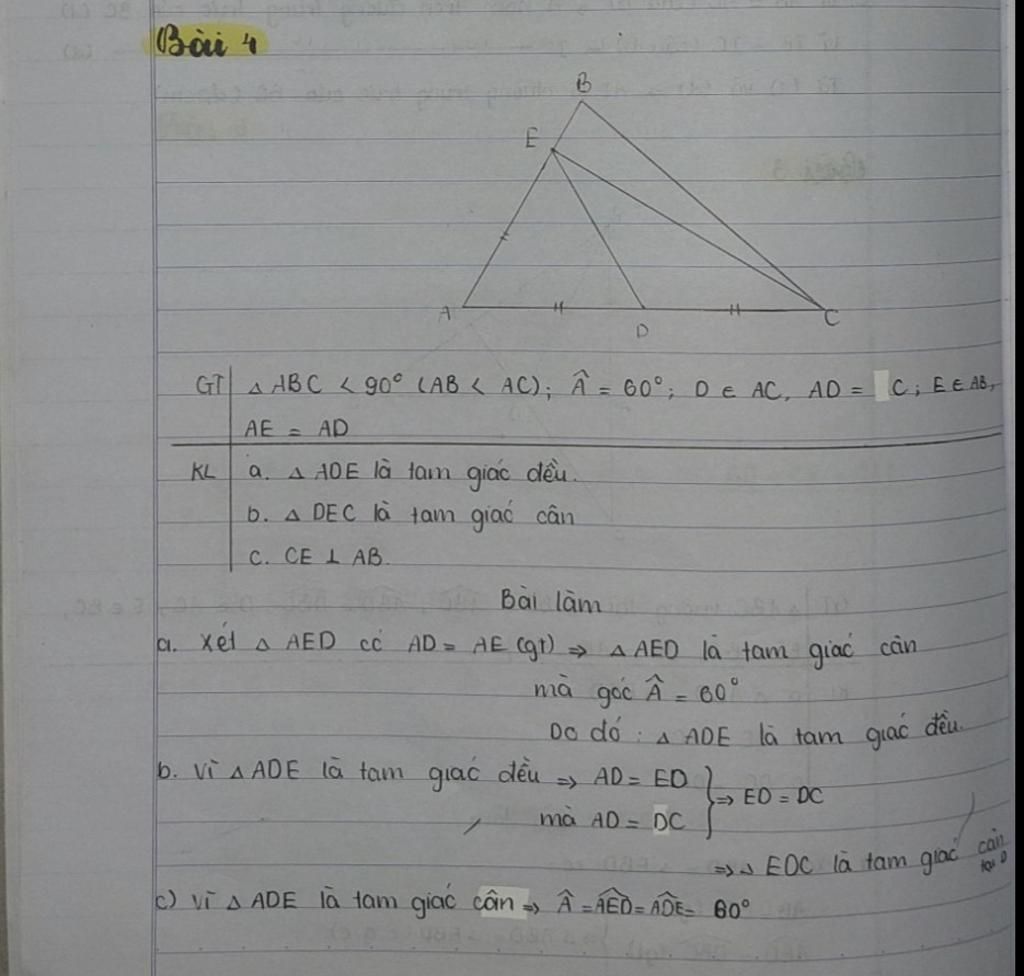 Bài 4
B
E
A
D
C
GT △ABC < 90° (AB < AC); Â = 60°; D ∈ AC, AD = C; E ∈ AB,
AE = AD
KL a. △ADE là tam giác đều.
b. △DEC là tam giác cân
c. CE ⊥ AB.
Bài làm
a. Xét △AED có AD = AE (gt) ⇒ △AED là tam giác cân
mà góc Â = 60°
Do đó: △ADE là tam giác đều.
b. Vì △ADE là tam giác đều ⇒ AD = ED
mà AD = DC } ⇒ ED = DC
⇒ △EDC là tam giác cân tại D
c) Vì △ADE là tam giác cân ⇒ Â = AÊD = AD̂E = 60°